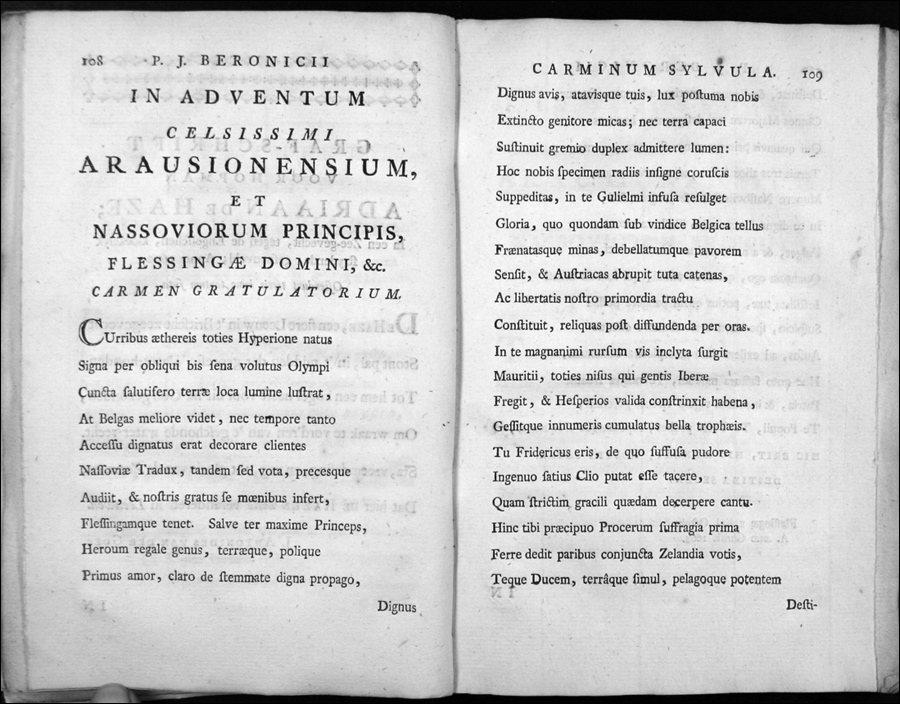 108 P. J. BERONICII
IN ADVENTUM
CELSISSIMI
ARAUSIONENSIUM,
ET
NASSOVIORUM PRINCIPIS,
FLESSINGÆ DOMINI, &c.
CARMEN GRATULATORIUM.
CUrribus æthereis toties Hyperione natus
Signa per obliqui bis ſena volutus Olympi
Cuncta ſalutifero terræ loca lumine luſtrat,
At Belgas meliore videt, nec tempore tanto
Acceſſu dignatus erat decorare clientes
Naſſoviæ Tradux, tandem ſed vota, precesque
Audiit, & noſtris gratus ſe mœnibus infert,
Fleſſingamque tenet. Salve ter maxime Princeps,
Heroum regale genus, terræque, polique
Primus amor, claro de ſtemmate digna propago,
Dignus
CARMINUM SYLVULA. 109
Dignus avis, atavisque tuis, lux poſtuma nobis
Extincto genitore micas; nec terra capaci
Suſtinuit gremio duplex admittere lumen:
Hoc nobis ſpecimen radiis inſigne coruſcis
Suppeditas, in te Gulielmi infuſa reſulget
Gloria, quo quondam ſub vindice Belgica tellus
Frænatasque minas, debellatumque pavorem
Senſit, & Auſtriacas abrupit tuta catenas,
Ac libertatis noſtro primordia tractu
Conſtituit, reliquas poſt diffundenda per oras.
In te magnanimi rurſum vis inclyta ſurgit
Mauritii, toties niſus qui gentis Iberæ
Fregit, & Heſperios valida conſtrinxit habena,
Geſſitque innumeris cumulatus bella trophæis.
Tu Fridericus eris, de quo ſuffuſa pudore
Ingenuo ſatius Clio putat eſſe tacere,
Quam ſtrictim gracili quædam decerpere cantu.
Hinc tibi præcipuo Procerum ſuffragia prima
Ferre dedit paribus conjuncta Zelandia votis,
Teque Ducem, terrâque ſimul, pelagoque potentem
Deſti-